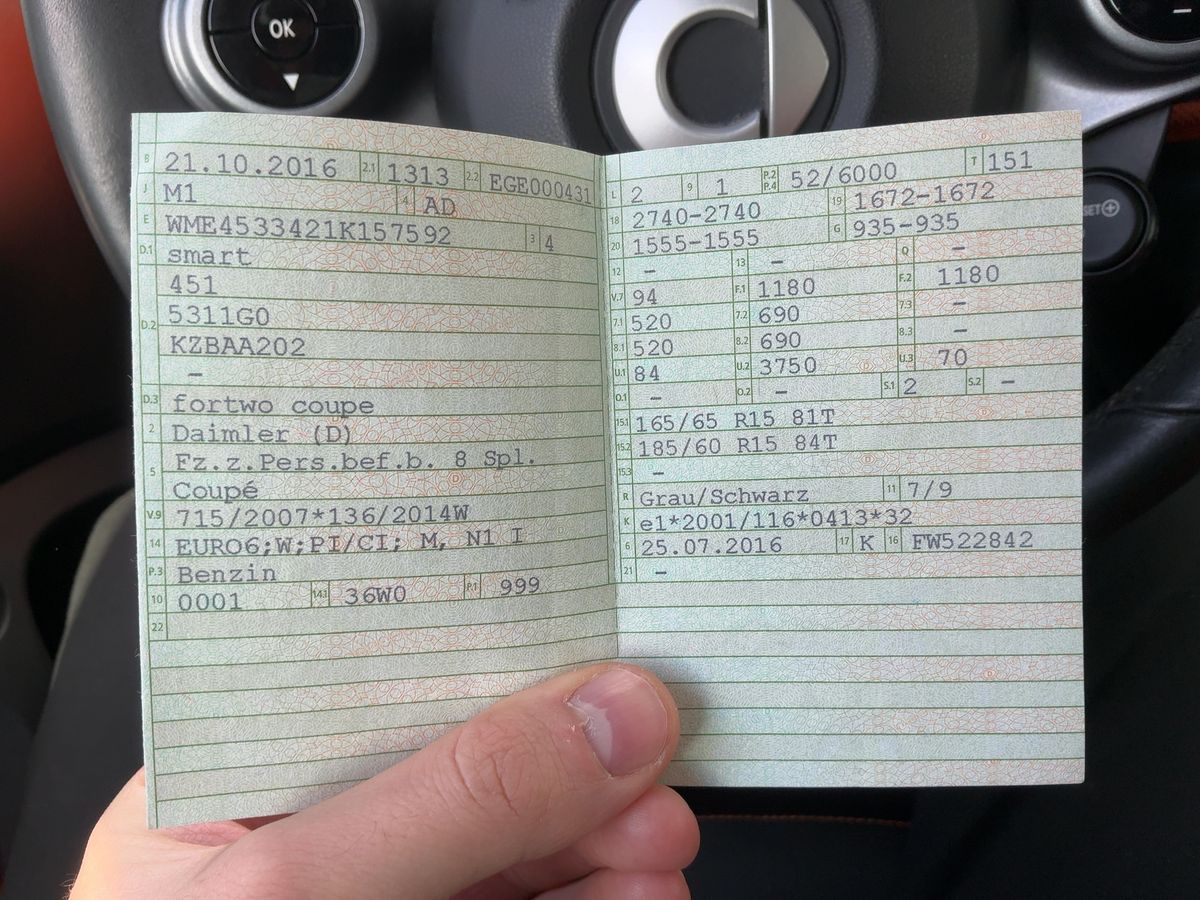 OK
SET
B 21.10.2016 2.1 1313 2.2 EGE000431
J M1 4 AD
E WME4533421K157592 3 4
D.1 smart
451
D.2 5311G0
KZBAA202
–
D.3 fortwo coupe
2 Daimler (D)
5 Fz.z.Pers.bef.b. 8 Spl.
Coupé
V.9 715/2007*136/2014W
14 EURO6;W;PI/CI; M, N1 I
P.3 Benzin
10 0001 14.1 36W0 P.1 999
22
L 2 9 1 P.2 P.4 52/6000 T 151
18 2740-2740 19 1672-1672
20 1555-1555 G 935-935
12 – 13 – Q –
V.7 94 F.1 1180 F.2 1180
7.1 520 7.2 690 7.3 –
8.1 520 8.2 690 8.3 –
U.1 84 U.2 3750 U.3 70
O.1 – O.2 – S.1 2 S.2 –
15.1 165/65 R15 81T
15.2 185/60 R15 84T
15.3 –
R Grau/Schwarz 11 7/9
K e1*2001/116*0413*32
6 25.07.2016 17 K 16 FW522842
21 –